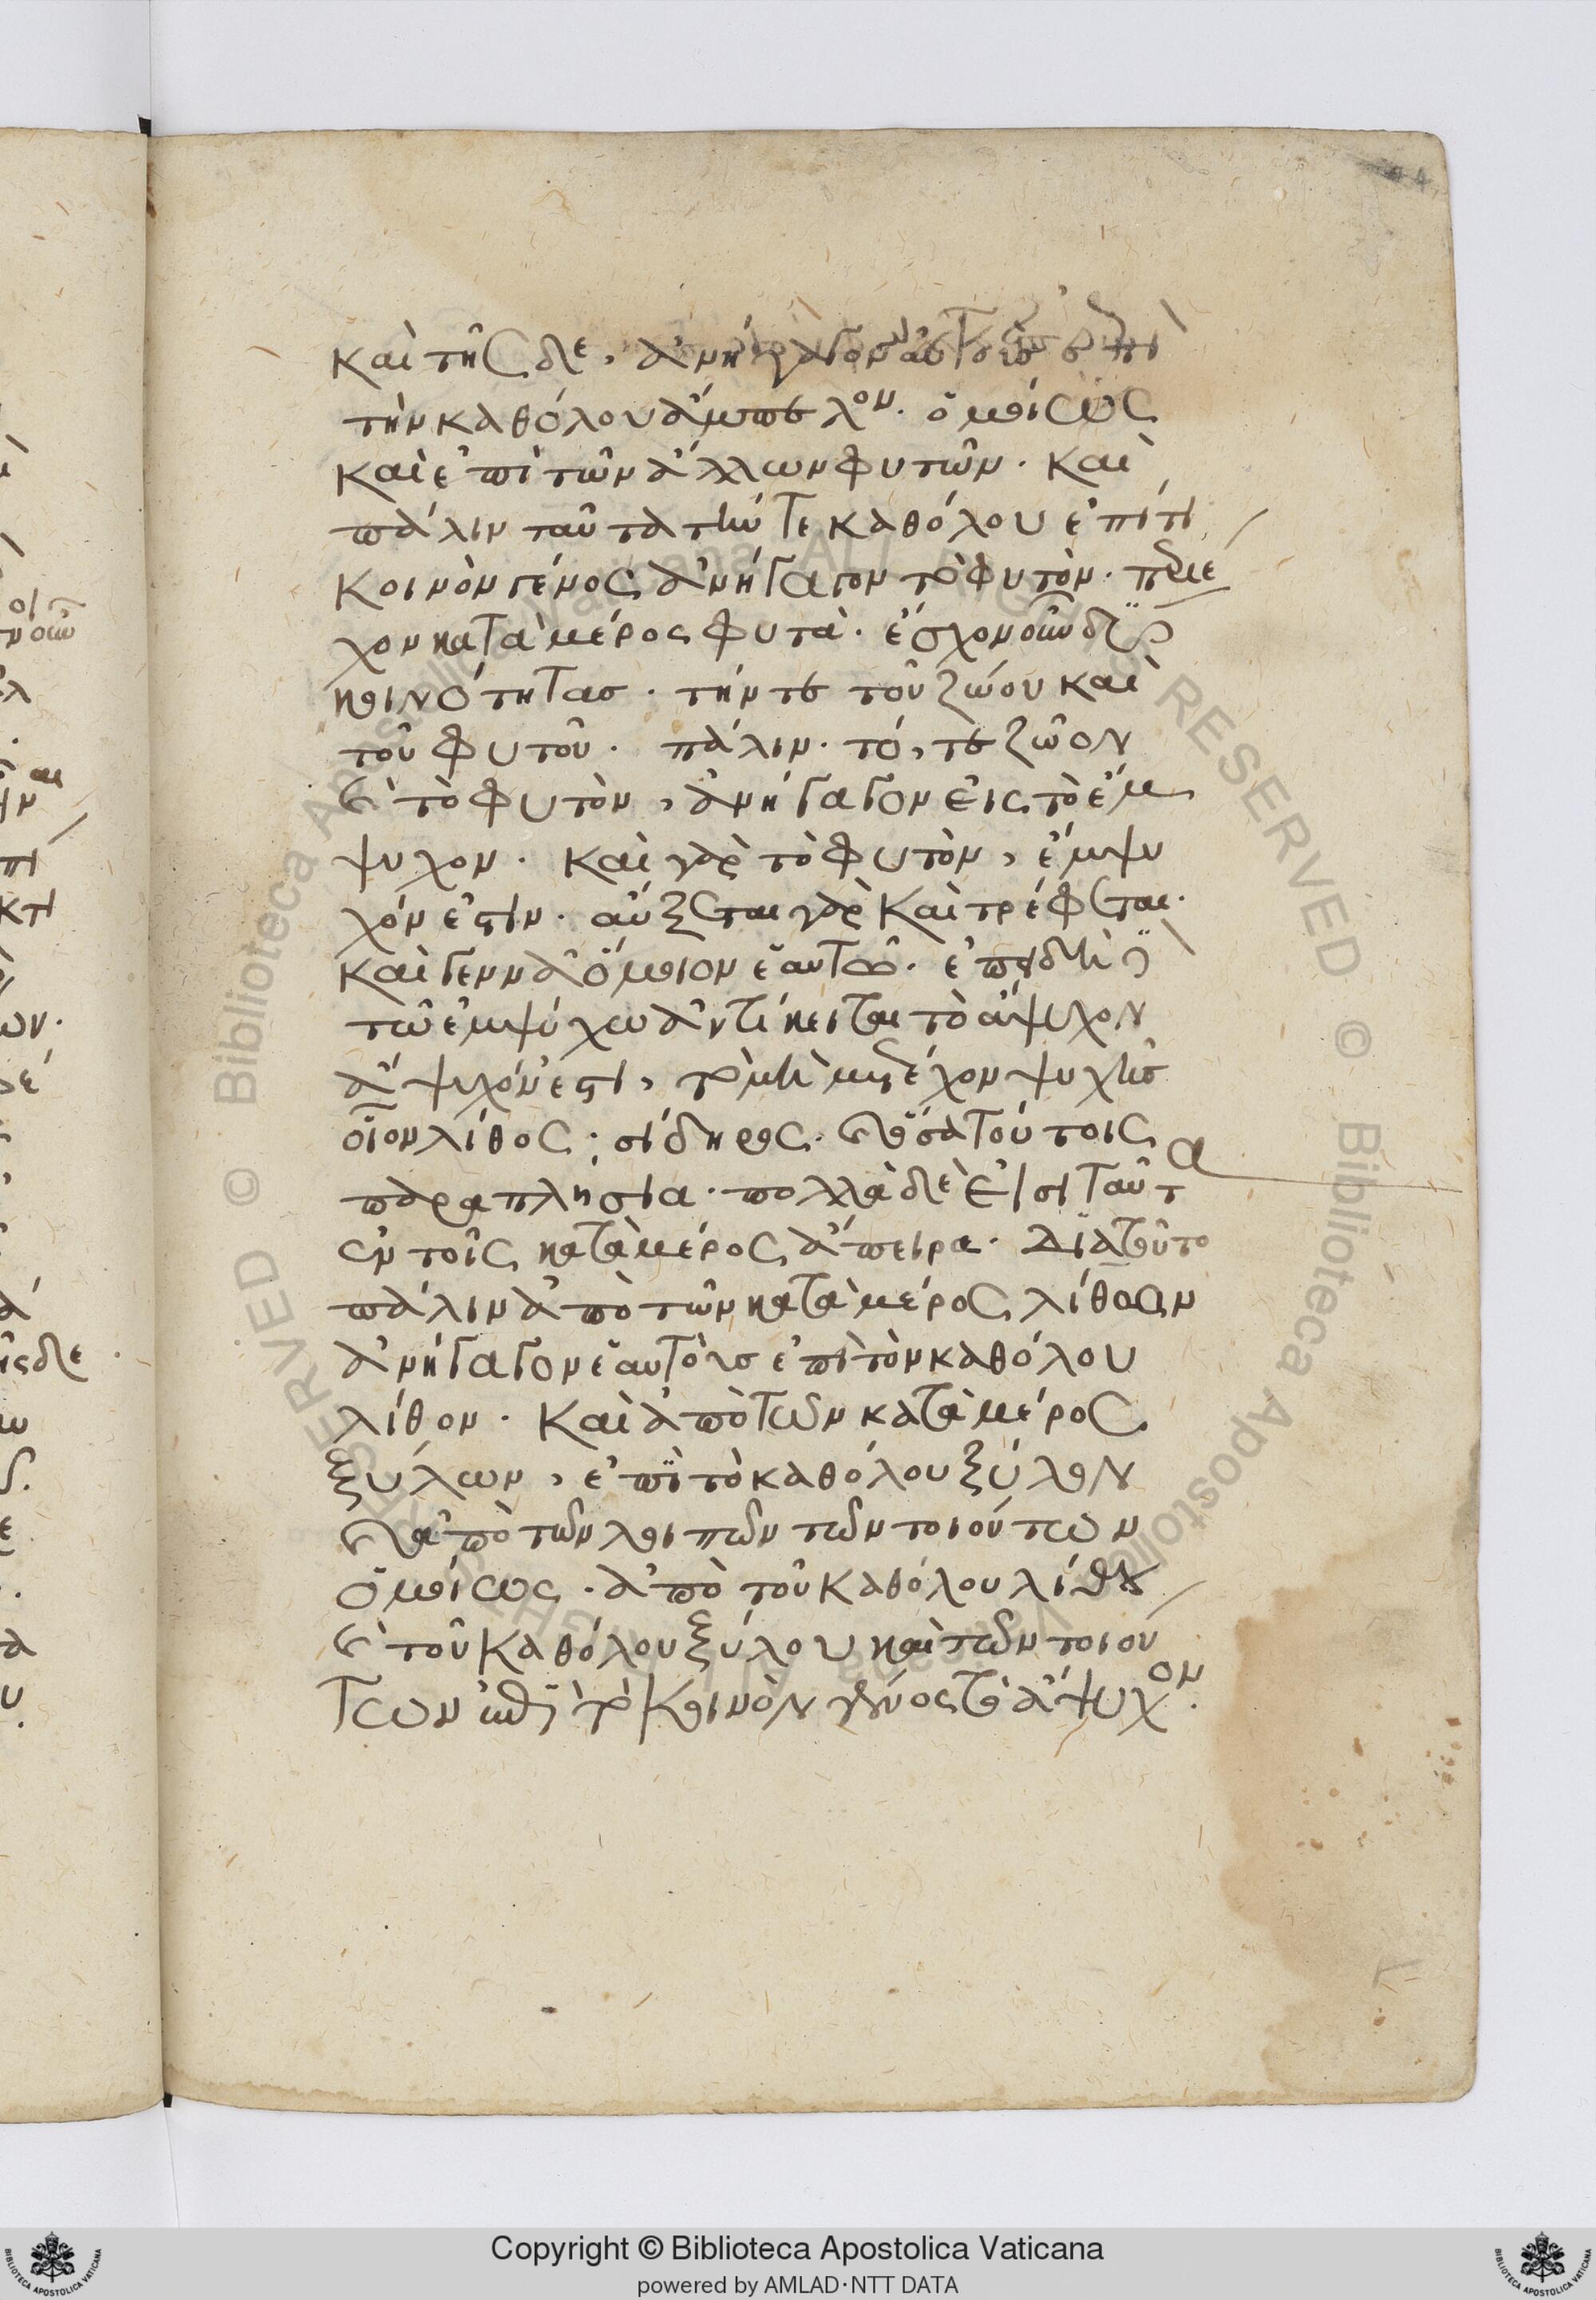 καὶ τῆσδε, ἀνήγαγον αὐτὰς ἐπὶ
τὴν καθόλου ἄμπελον. ὁμοίως
καὶ ἐπὶ τῶν ἄλλων φυτῶν. καὶ
πάλιν ταῦτα τήν τε καθόλου ἐπί τι
κοινὸν γένος ἀνήγαγον τὸ φυτὸν.
χον κατὰ μέρος φυτά. ἔσχον οὖν δύο
κοινότητας. τήν τε τοῦ ζώου καὶ
τοῦ φυτοῦ. πάλιν. τό, τε ζῶον
καὶ τὸ φυτὸν, ἀνήγαγον εἰς τὸ ἔμ
ψυχον. καὶ γὰρ τὸ φυτὸν, ἔμψυ
χόν ἐστιν. αὔξεται γὰρ καὶ τρέφεται.
καὶ γεννᾶ ὅμοιον ἑαυτῶ. ἐπειδὴ
τῶ ἐμψύχω ἀντίκειται τὸ ἄψυχον
ἄψυχόν ἐστι, τὸ μὴ μετέχον ψυχῆς
οἷον λίθος. σίδηρος. καὶ ὅσα τούτοις
παραπλήσια. πολλὰ δὲ εἰσὶ ταῦτα
ἐν τοῖς κατὰ μέρος ἄπειρα. Διὰ τοῦτο
πάλιν ἀπὸ τῶν κατὰ μέρος λίθων
ἀνήγαγον ἑαυτοὺς ἐπὶ τὸν καθόλου
λίθον. καὶ ἀπὸ τῶν κατὰ μέρος
ξύλων, ἐπὶ τὸ καθόλου ξύλον
καὶ ἀπὸ τῶν λοιπῶν τῶν τοιούτων
ὁμοίως. ἀπὸ τοῦ καθόλου λίθου
καὶ τοῦ καθόλου ξύλου καὶ τῶν τοιού
των ἐπὶ τὸ κοινὸν γένος τὸ ἄψυχον.